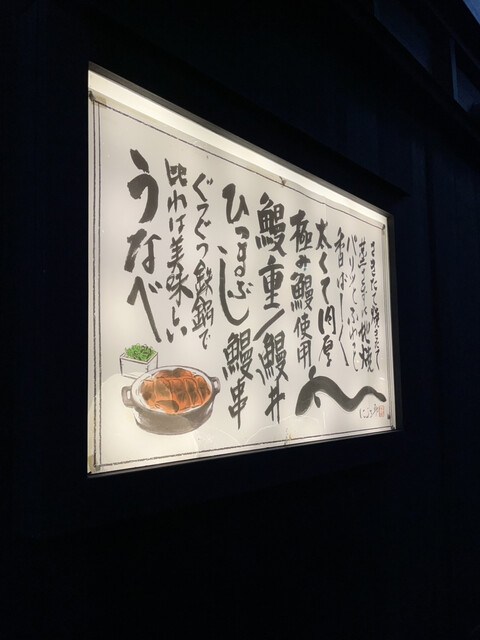 さきたて焼きたて
地焼
パリッとふわっと
香ばしく
太くて肉厚
極み鰻使用
鰻重/鰻丼
ひつまぶし 鰻串
ぐつぐつ鉄鍋で
此れは美味しい
うなべ